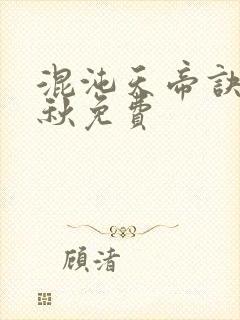 混沌天帝訣
秋免費
顧渚